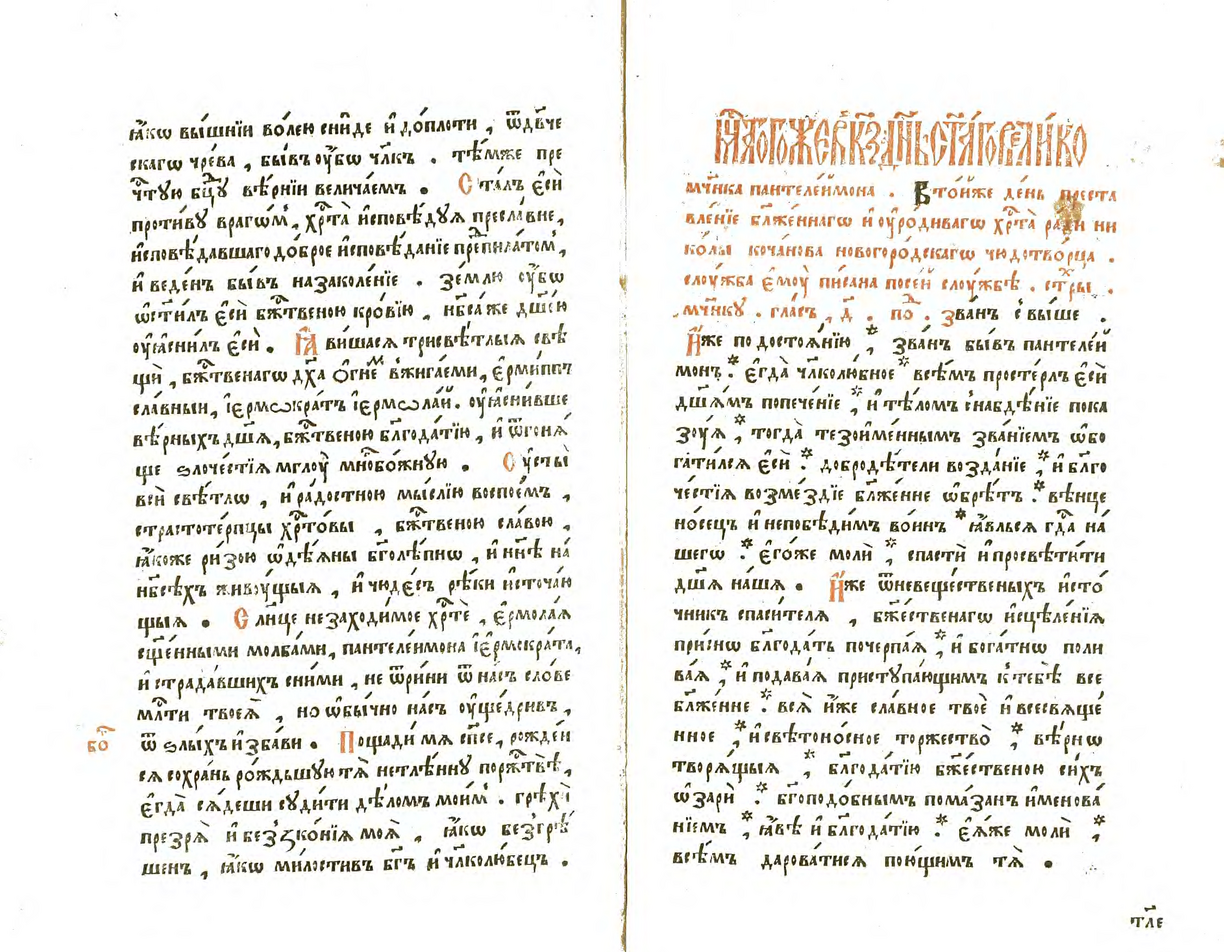 ꙗ҆́кѡ вы́шнїи во́лею сни́де и҆ до́плоти , ѿдв҃че
скагѡ чре́ва , бы́въ ᲂу҆́бѡ чл҃къ . тѣ́мже пре
чⷭ҇тую бцⷣу вѣ́рнїи велича́емъ . Ста́лъ є҆сѝ
проти́вꙋ врагѡ́мъ , хрⷭ҇та̀ и҆сповѣ́дуѧ пресла́вне ,
и҆сповѣ́давшаго до́брое и҆сповѣ́данїе препила́томъ ,
и҆ веде́нъ бы́въ назаколе́нїе . зе́млю ᲂу҆́бѡ
ѡ҆ст҃и́лъ є҆сѝ бжⷭ҇твеною кро́вїю , нб҃са́ же дш҃е́ю
ᲂу҆ꙗсни́лъ є҆сѝ . Ꙗ҆ви́шасѧ трисвѣ́тлыѧ свѣ
щѝ , бжⷭ҇твенагѡ дх҃а ѻ҆гне́мъ вжига́еми , є҆рми́ппъ
сла́вныи , і҆ермѡкра́тъ і҆ермѡла́й . ᲂу҆ꙗсни́вше
вѣ́рныхъ дш҃ѧ , бжⷭ҇твеною блгⷣа́тїю , и҆ ѿгонѧ́
ще ѕлоче́стїѧ мглоу̀ многобо́жную . Су́сты̀
всѝ свѣ́тлѡ , и҆ ра́достною мы́слїю воспое́мъ ,
страстоте́рпцы хрⷭ҇то́вы , бжⷭ҇твеною сла́вою ,
ꙗ҆́коже ри́зою ѡ҆дѣ́ѧны бг҃олѣ́пнѡ , и҆ нн҃ѣ на́
нб҃сѣ́хъ живоу́щыѧ , и҆ чюде́съ рѣ́ки и҆сточа́ю
щыѧ . Со́лнце незаходи́мое хрⷭ҇тѐ , є҆рмола́ѧ
сщ҃е́нными молба́ми , пантелеи́мона і҆ермокра́та ,
и҆ страда́вшихъ сни́ми , не ѿри́ни ѿ на́съ сло́ве
млⷭ҇ти твоеѧ̀ , но ѡ҆бы́чно на́съ ᲂу҆ще́дривъ ,
ѿ ѕлы́хъ и҆зба́ви . Пощади́ мѧ сп҃се , рожде́й
сѧ сохра́нь ро́ждьшую тѧ̀ нетлѣ́нну порⷤтвѣ̀ ,
є҆гда̀ сѧ́деши суди́ти дѣло́мъ мои́мъ . грѣхѝ
презрѧ̀ и҆ безꙁко́нїѧ моѧ̀ , ꙗ҆́кѡ безгрѣ́
шенъ , ꙗ҆́кѡ ми́лостивъ бг҃ъ и҆ чл҃колю́бецъ .
бо
мцⷭ҇а тогоже в҃ кз҃ дн҃ь ст҃а́гѡ вели́ко
мч҃нка пантелеи́мона . Втойже де́нь преста
вле́нїе бл҃же́ннагѡ и҆ ᲂу҆ро́дивагѡ хрⷭ҇та̀ ра́ди ни
ко́лы коча́нова новогоро́дскагѡ чюдотво́рца .
слоу́жба є҆моу̀ пи́сана посе́й слоу́жбѣ . стⷯры .
мч҃нку . гла́съ , д҃ . поⷣ . зва́нъ свы́ше .
И҆́же по достоѧ́нїю *, зва́нъ бы́въ пантелеи́
монъ *. є҆гда̀ чл҃колю́бное * всѣ́мъ просте́рлъ є҆сѝ
дш҃ѧ́мъ попече́нїе *, и҆ тѣло́мъ снабдѣ́нїе пока
зоу́ѧ *, тогда̀ тезоиме́ннымъ зва́нїемъ ѡ҆бо
гати́лсѧ є҆сѝ *. добродѣ́тели возда́нїе *, и҆ бл҃го
че́стїѧ возме́здїе бл҃же́нне ѡ҆брѣ́тъ *. вѣ́нце
но́сецъ и҆ непобѣди́мъ во́инъ * ꙗ҆́влься гдⷭ҇а на́
шегѡ *. є҆го́же молѝ *, спастѝ и҆ просвѣти́ти
дш҃ѧ на́шѧ . И҆́же ѿневеще́ственыхъ и҆сто́
чникъ спаси́телѧ , бж҃е́ственагѡ и҆сцѣле́нїѧ
при́снѡ блгⷣа́ть почерпа́ѧ *, и҆ бога́тнѡ поли
ва́ѧ *, и҆ подава́ѧ приступа́ющимъ ктебѣ̀ все
бл҃же́нне *. всѧ̀ и҆̀же сла́вное твоѐ и҆ всесвѧще́
нное *, и҆ свѣтоно́сное торжество̀ *, вѣ́рнѡ
творѧ́щыѧ *, блгⷣа́тїю бж҃е́ственою си́хъ
ѡ҆зарѝ *. бг҃оподо́бнымъ пома́занъ и҆менова́
нїемъ *, ꙗ҆́вѣ и҆ блгⷣа́тїю *. є҆ѧ́же молѝ *,
всѣ́мъ дарова́тисѧ пою́щимъ тѧ̀ .
тл҃е